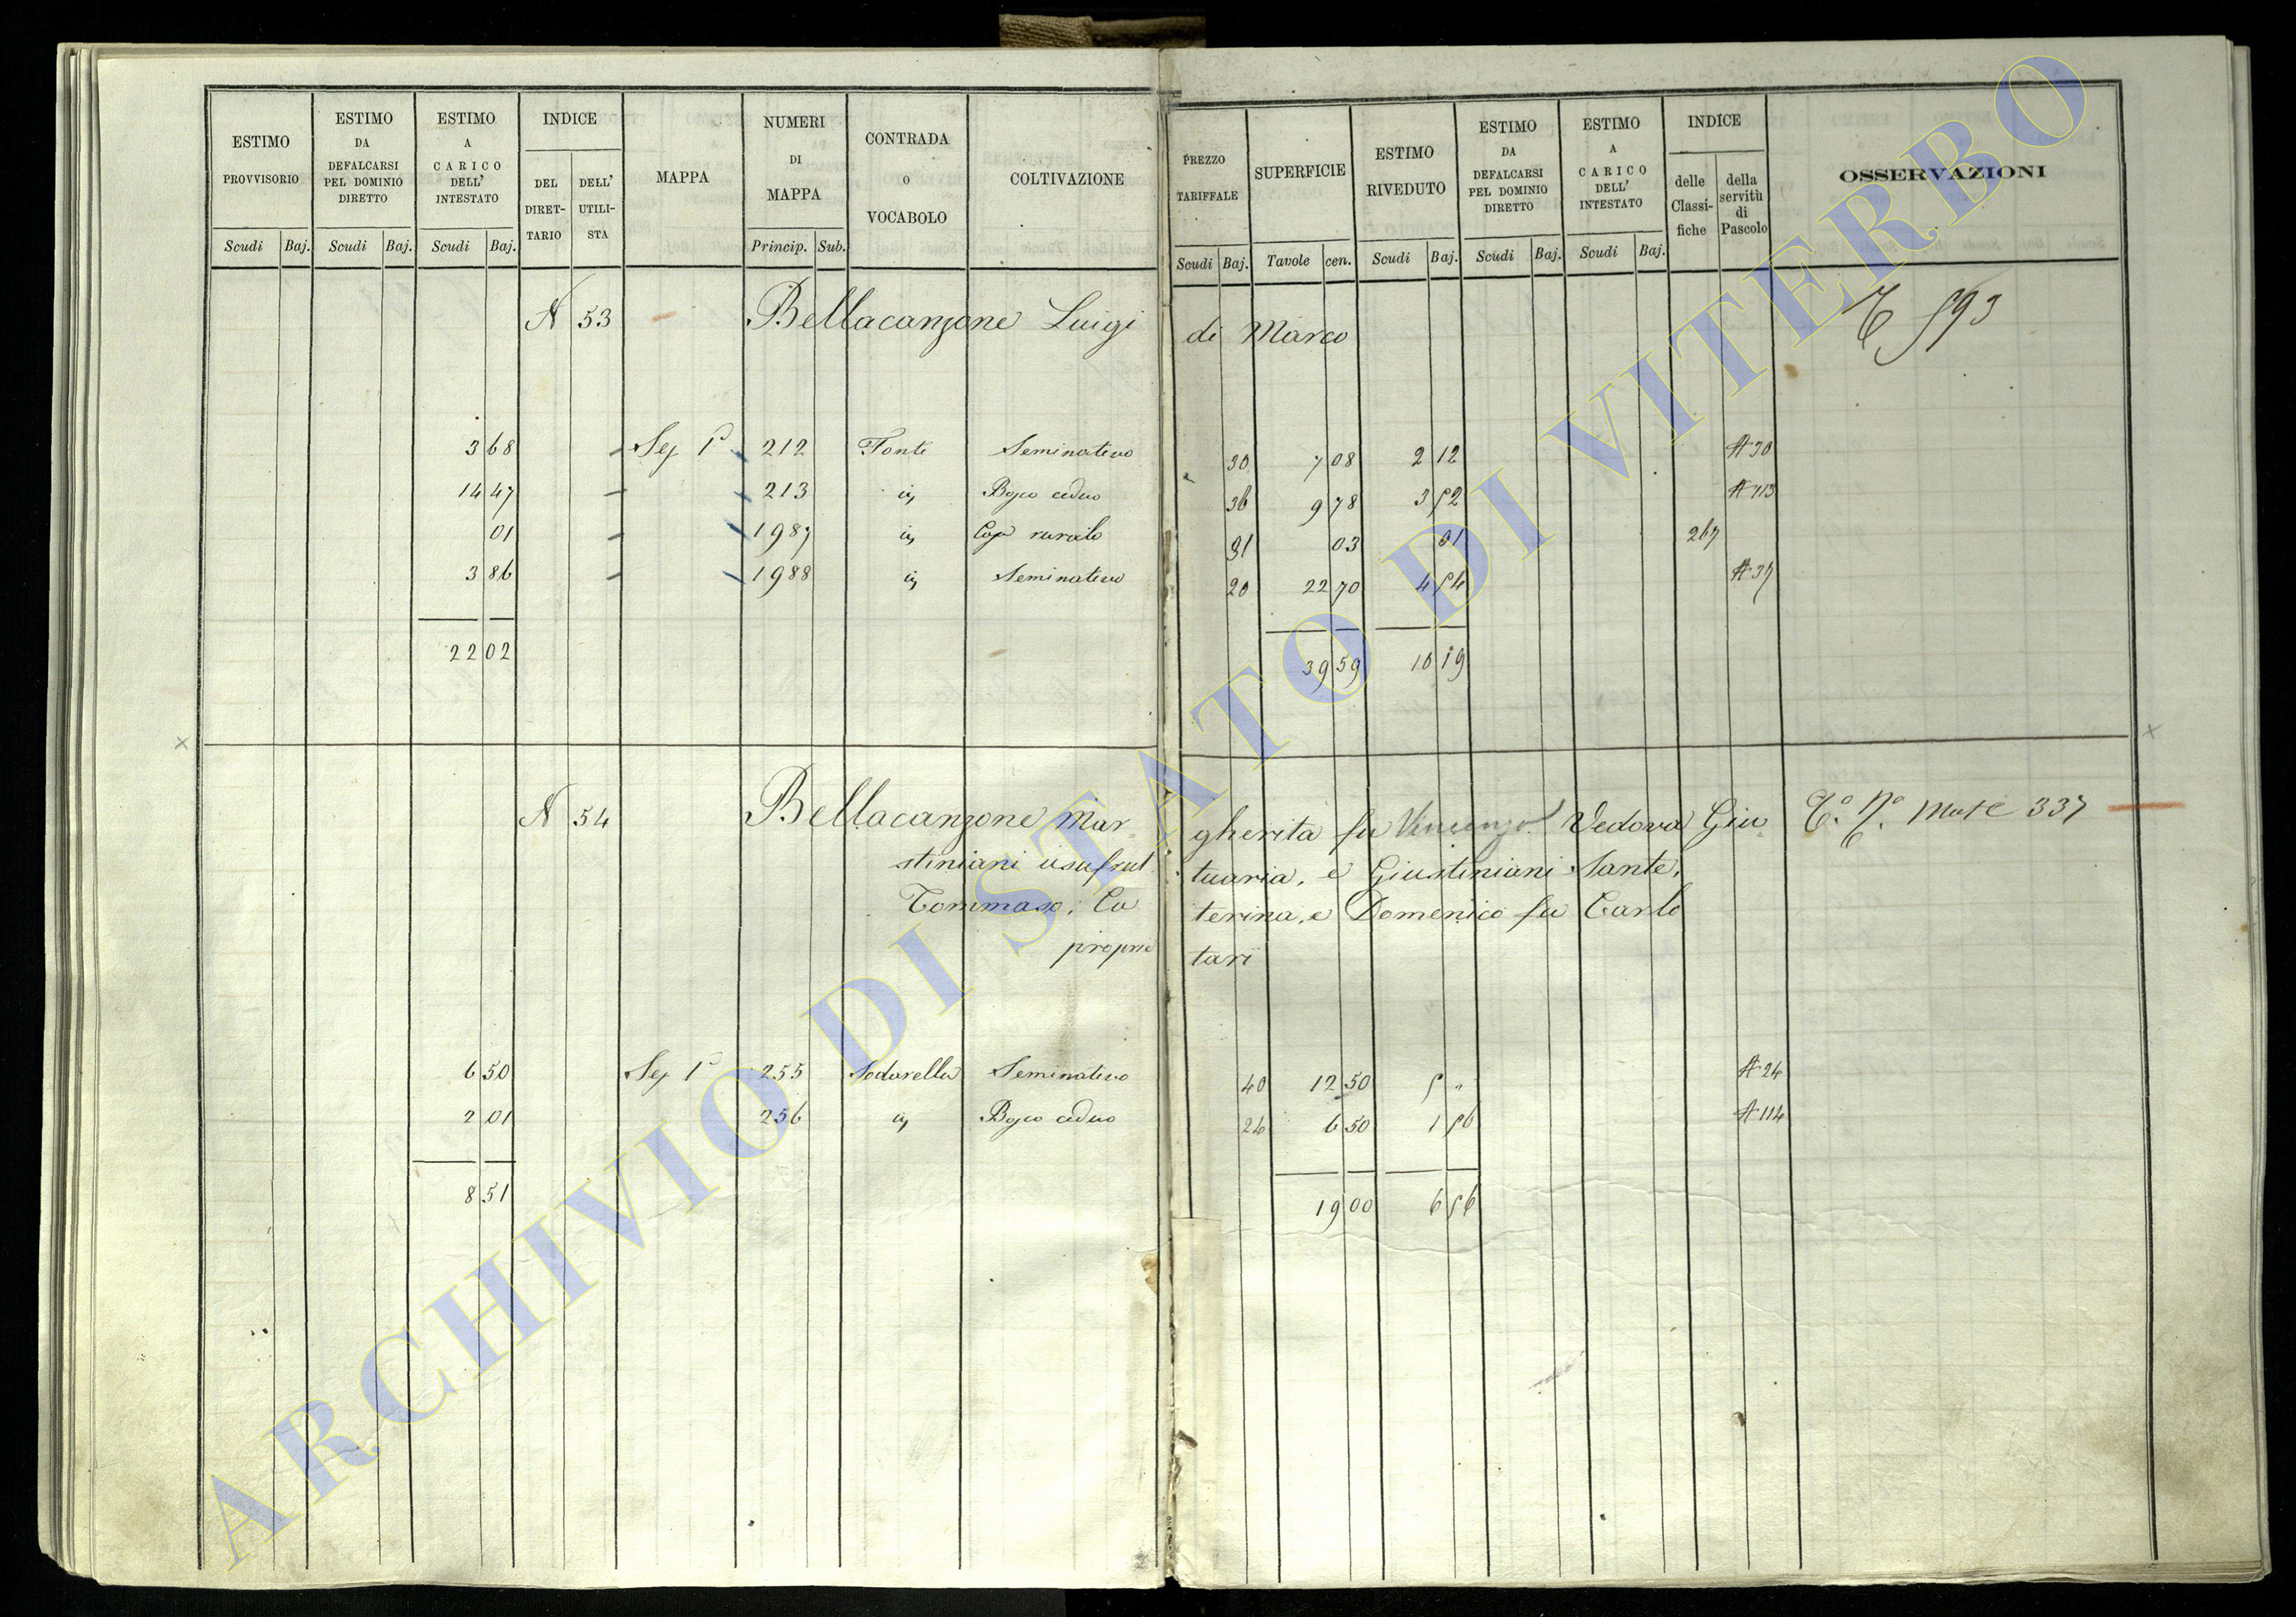 ESTIMO PROVVISORIO | ESTIMO DA DEFALCARSI PEL DOMINIO DIRETTO | ESTIMO A CARICO DELL' INTESTATO | INDICE | MAPPA | NUMERI DI MAPPA | CONTRADA O VOCABOLO | COLTIVAZIONE | PREZZO TARIFFALE | SUPERFICIE | ESTIMO RIVEDUTO | ESTIMO DA DEFALCARSI PEL DOMINIO DIRETTO | ESTIMO A CARICO DELL' INTESTATO | INDICE | OSSERVAZIONI
DEL DIRET-TARIO | DELL' UTILI-STA | delle Classi-fiche | della servitù di Pascolo
Scudi | Baj. | Scudi | Baj. | Scudi | Baj. | Princip. | Sub. | Scudi | Baj. | Tavole | cen. | Scudi | Baj. | Scudi | Baj. | Scudi | Baj.
N 53 Bellacanzone Luigi di Marco 593
3 68 Sez 1ª 212 Fonte Seminativo 30 7 08 2 12 A 30
14 47 213 id Bosco ceduo 36 9 78 3 52 A 113
01 1987 id Casa rurale 31 03 01 267
3 86 1988 id Seminativo 20 22 70 4 54 A 37
22 02 39 59 10 19
x x
N 54 Bellacanzone Mar- gherita fu Vincenzo Vedova Giu- 337
stiniani usufrut tuaria, e Giustiniani Sante,
Tommaso, Ca terina, e Domenico fu Carlo
proprie tari
6 50 Sez 1ª 255 Sodarella Seminativo 40 12 50 5 " A 24
2 01 256 id Bosco ceduo 24 6 50 1 56 A 114
8 51 19 00 6 56
ARCHIVIO DI STATO DI VITERBO